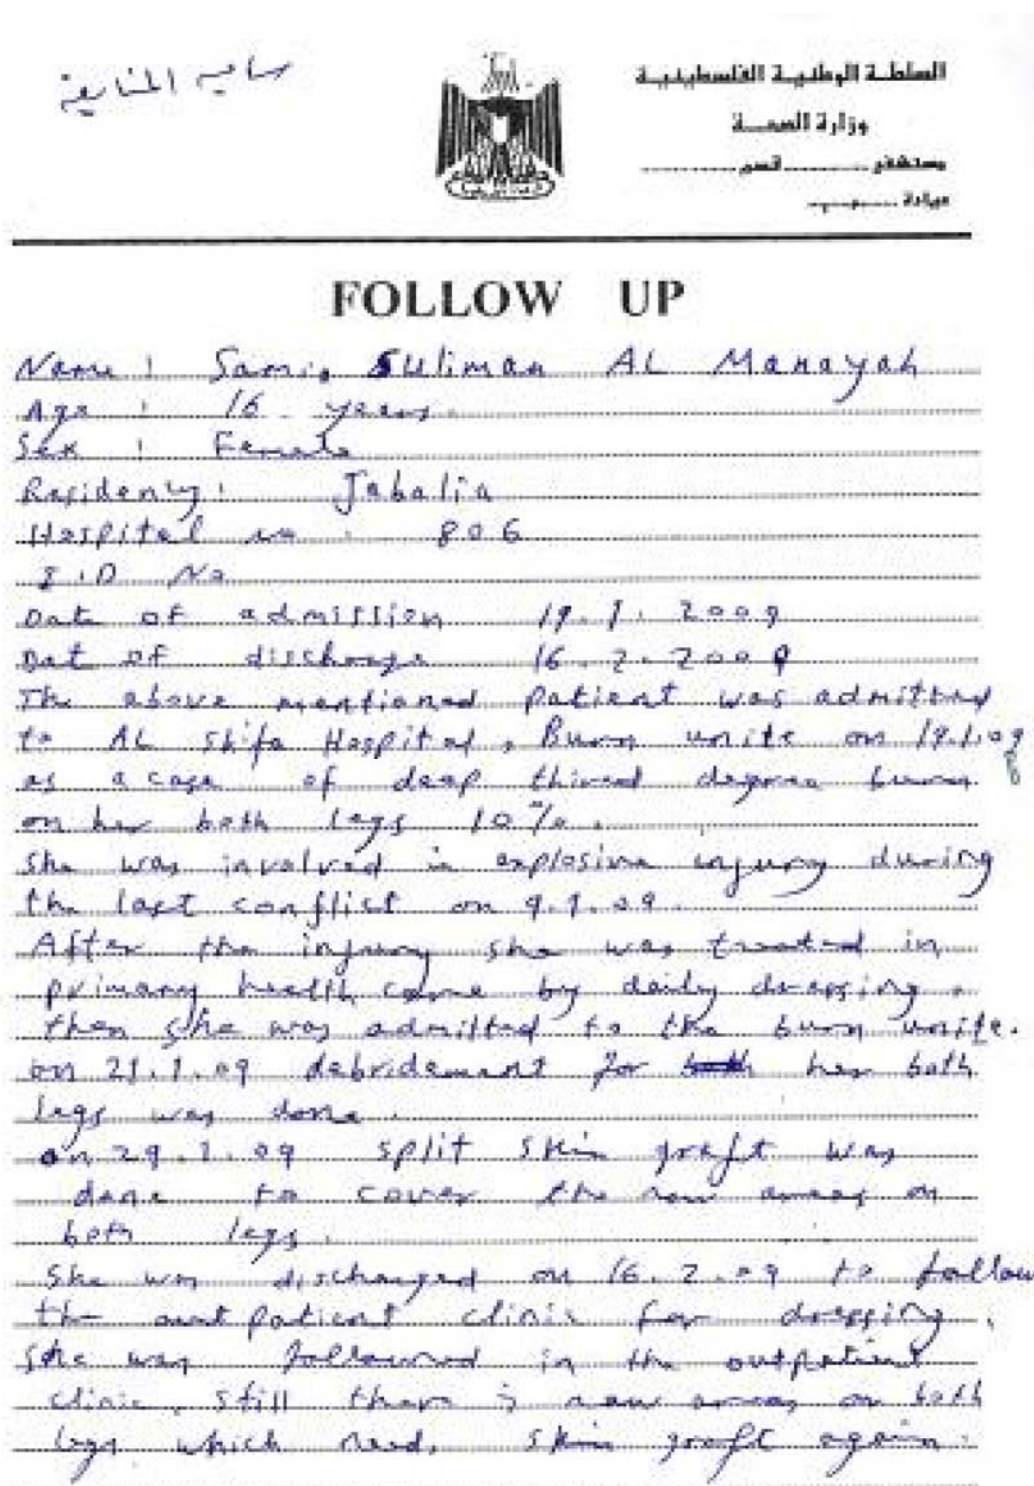 سامية المنايعة
السلطة الوطنية الفلسطينية
وزارة الصحة
مستشفى ............ قسم ............
عيادة ............
FOLLOW UP
Name : Samia Suliman AL Manayah
Age : 16 years.
Sex : Female
Residency : Jabalia
Hospital no : 806
I.D No
Date of admission 19.1.2009
Dat of discharge 16.2.2009
The above mentioned patient was admitted
to AL Shifa Hospital, Burn unite on 19.1.09
as a case of deep thired degree burn
on her both legs 10%.
She was involved in explosive injury during
the last conflict on 9.1.09.
After the injury she was treated in
primary health care by daily dressing.
then she was admitted to the burn unite.
on 21.1.09 debridement for her both
legs was done.
on 29.1.09 split skin graft was
done to cover the raw areas on
both legs.
She was discharged on 16.2.09 to follow
the out patient clinic for dressing.
She was followed in the outpatient
clinic, still there is raw areas on both
legs which need, skin graft again.